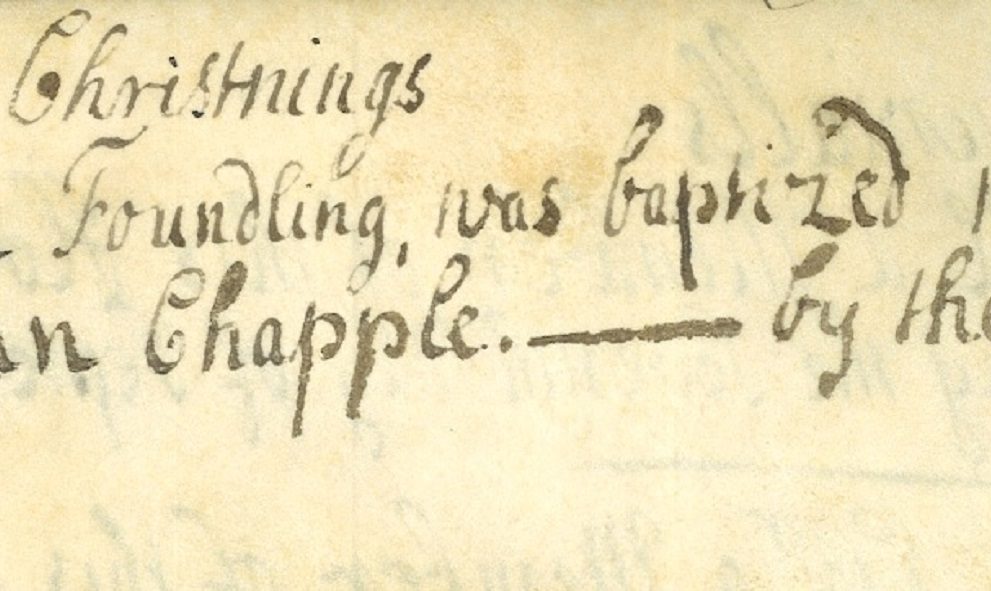 Christnings
Foundling, was baptized
Chapple. — by the